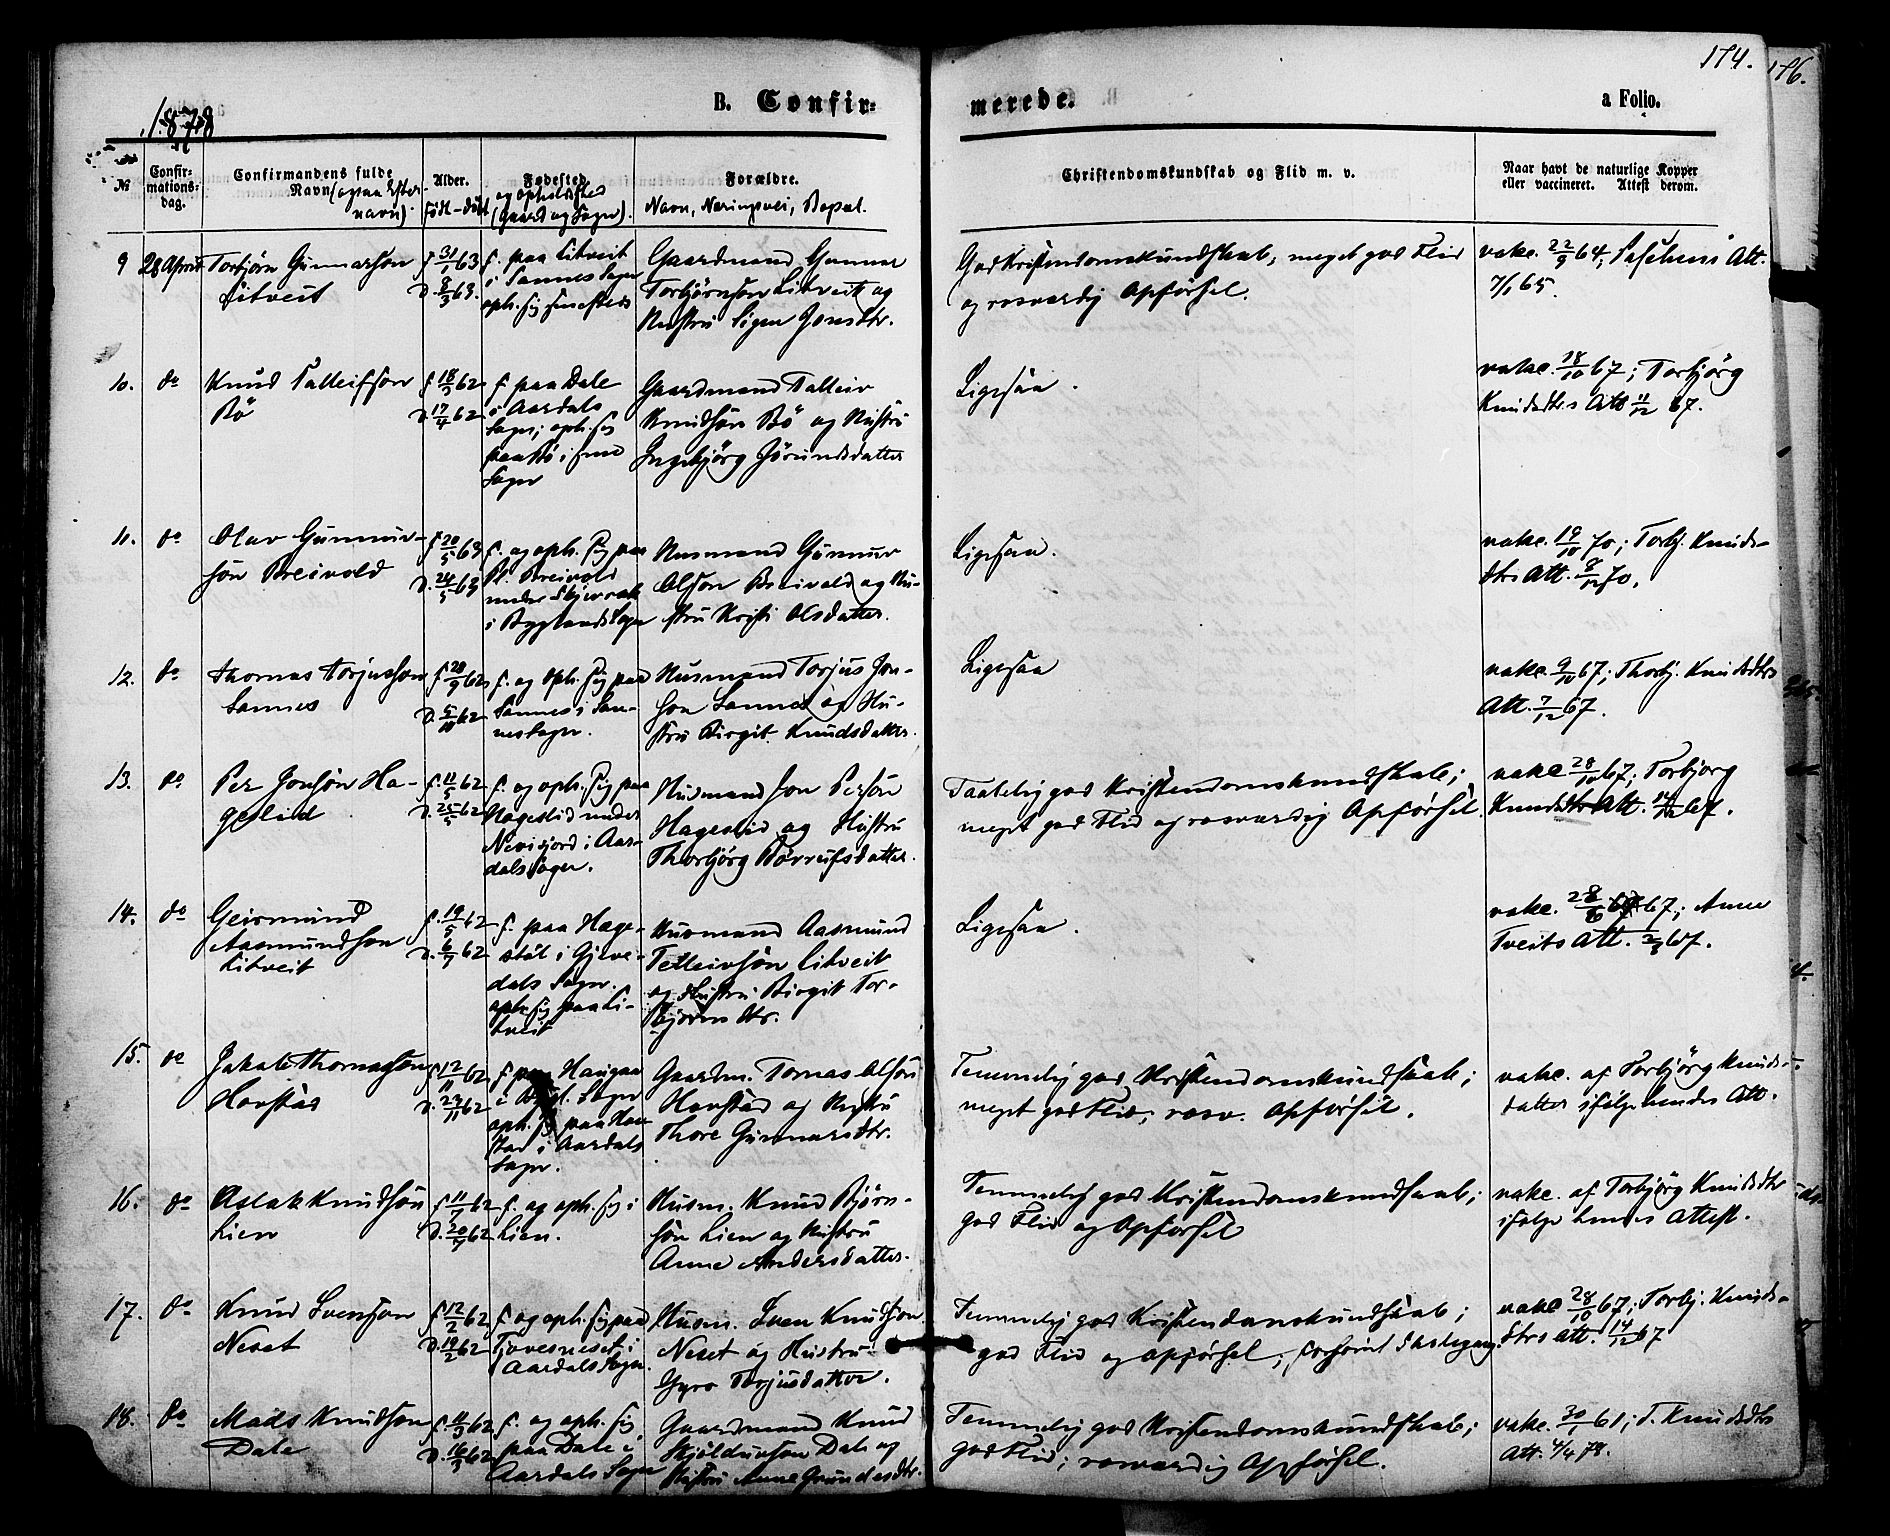 174.
176.
1878
B. Confir-
merede.
a Folio.
№
Confir-
mations-
dag.
Confirmandens fulde
Navn (ogsaa Efter-
navn).
Alder.
født - døbt
Fødested
og Opholdssted
(Gaard og Sogn).
Forældre.
Navn, Næringsvei, Bopæl.
Christendomskundskab og Flid m. v.
Naar havt de naturlige Kopper
eller vaccineret. Attest derom.
9 28 April Torbjörn Gunnarson
Litveit
f. 31/1 63
D. 8/3 63.
f. paa Litveit
i Sannes Sogn
oph. sig sammesteds
Gaardmand Gunnar
Torbjörnson Litveit og
Hustru Sigen Jonsdtr.
God Kristendomskundskab, meget god Flid
og rosværdig Opførsel.
vakc. 22/9 64, Att.
7/1 65.
10. do Knud Talleifson
Bö
f. 18/3 62
D. 17/4 62
f. paa Dale
i Aardals
Sogn; oph. sig
paa Bö i samme
Sogn
Gaardmand Talleiv
Knudson Bö og Hustru
Ingebjörg Jörundsdatter
Ligesaa.
vakc. 18/10 67; Torbjörg
Knudsdtrs Att 11/12 67.
11. do Olav Gunnuv-
son Breivold
f. 20/5 63
D. 24/5 63
f. og oph. sig paa
Pl. Breivold
under
i Byglands Sogn
Husmand Gunnuv
Olson Breivold og Hu-
stru Kristi Olsdatter.
Ligesaa.
vakc. 19/10 70; Torbj. Knuds-
dtrs Att. 8/12 70.
12. do Thomas Torjusson
Sannes
f. 28/9 62
D. 5/10 62
f. og oph. sig paa
Sannes i San-
nes Sogn.
Husmand Torjus Jon-
son Sannes og Hu-
stru Birgit Knudsdatter.
Ligesaa
vakc. 9/10 67; Thorbj. Knudsdtrs
Att. 7/12 67.
13. do Per Jonson Ha-
geslid
f. 11/5 62
D. 25/5 62
f. og oph. sig paa
Hageslid under
i Aar-
dals Sogn.
Husmand Jon Person
Hageslid og Hustru
Thorbjörg
Taalelig god Kristendomskundskab;
meget god Flid og rosværdig Opførsel.
vakc 28/10 67; Torbjörg
Knudsdtrs Att. 14/12 67.
14. do Geirmund
Aasmundson
Litveit
f. 19/5 62
D. 6/7 62
f. paa Hage-
stöl i Gjøve-
dals Sogn.
oph. sig paa Li-
tveit
Husmand Aasmund
Telleivson Litveit
og Hustru Birgit Tor-
björns dtr.
Ligesaa.
vakc. 28/6 67; Anne
Tveits Att. 67.
15. do Jakob Thomasson
Havstad
f. 12/11 62
D. 23/11 62
f. paa Haugaa
i Bygl. Sogn
oph. sig paa Hav
stad i Aardals
Sogn.
Gaardm. Tomas Olson
Havstad og Hustru
Thore Gunnarsdtr.
Temmelig god Kristendomskundskab;
meget god Flid; rosv. Opførsel.
vakc. af Torbjörg Knuds-
datter ifølge hendes Att.
16. do Aslak Knudson
Lien
f. 11/7 62
D. 20/7 62
f. og oph. sig i
Lien.
Husm. Knud Björn-
son Lien og Hustru
Anne Andersdatter.
Temmelig god Kristendomskundskab;
god Flid og Opførsel
vakc. af Torbjörg Knudsdtr
ifølge hendes Attest.
17. do Knud Svenson
Neset
f. 12/2 62
D. 19/2 62
f. og oph. sig paa
Tjovesneset i
Aardals Sogn.
Husm. Sven Knudson
Neset og Hustru
Gyro Torjusdatter.
Temmelig god Kristendomskundskab;
god Flid og Opførsel; forsömt Skolegang.
vakc 28/10 67; Torbj. Knuds-
dtrs Att. 14/12 67
18. do Mads Knudson
Dale
f. 11/3 62
D. 16/3 62
f. og oph. sig
paa Dale i
Aardals Sogn
Gaardmand Knud
Skjöldulfson Dale og
Hustru Anne
Temmelig god Kristendomskundskab;
god Flid; rosværdig Opførsel.
vakc. 30/1 61; T. Knudsdtrs
Att. 4/4 78.